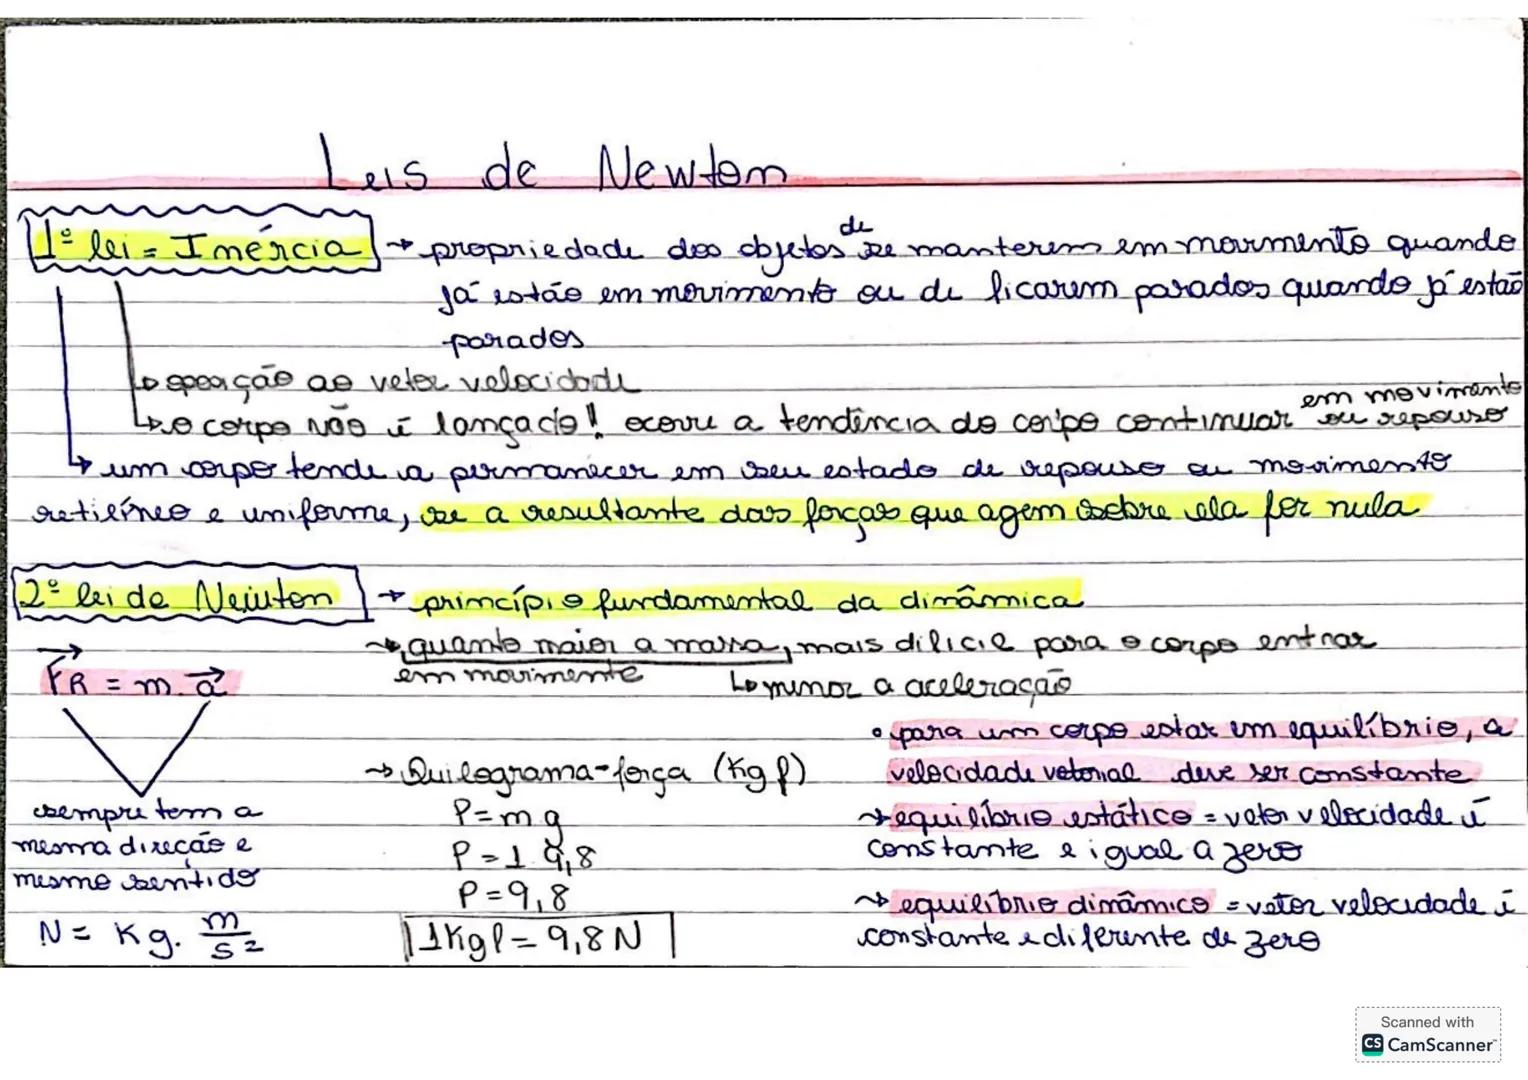 Leis de Newton
1ª lei = Inércia → propriedade dos objetos de se manterem em movimento quando
já estão em movimento ou de ficarem parados quando já estão
parados
ao vetor velocidade
o corpo não é lançado! ocorre a tendência do corpo continuar em movimento ou repouso
um corpo tende a permanecer em seu estado de repouso ou movimento
retilíneo e uniforme, se a resultante das forças que agem sobre ela for nula
2ª lei de Newton → princípio fundamental da dinâmica
→ quanto maior a massa, mais dificil para o corpo entrar
em movimento
menor a aceleração
FR = m.a
sempre tem a
mesma direção e
mesmo sentido
N = Kg. m/s2
→ Quilograma-força (Kgf)
P=m.g
P=1.9,8
P=9,8
1Kgf=9,8N
• para um corpo estar em equilíbrio, a
velocidade vetorial deve ser constante
→ equilíbrio estático = vetor velocidade é
constante e igual a zero
→ equilíbrio dinâmico = vetor velocidade é
constante e diferente de zero
Scanned with
CS CamScanner